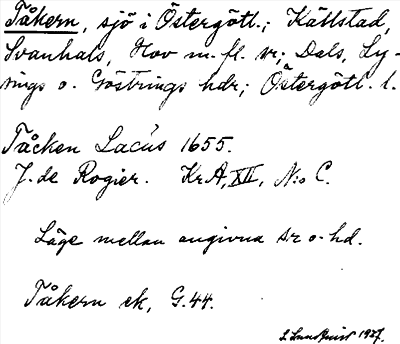 Tåkern, sjö i Östergötl.; Källstad,
Svanhals, Hov m. fl. sr; Dals, Ly-
sings o. Göstrings hdr; Östergötl. l.
Tåcken Lacus 1655.
J. de Rogier. KrA, XII, N:o C.
Läge mellan angivna sr o. hd.
Tåkern ek, G.44.
S Lundkvist 1927.